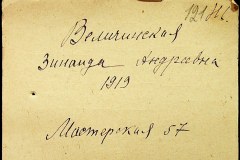 Величинская
Зинаида Андреевна
1919
Мастерская 57